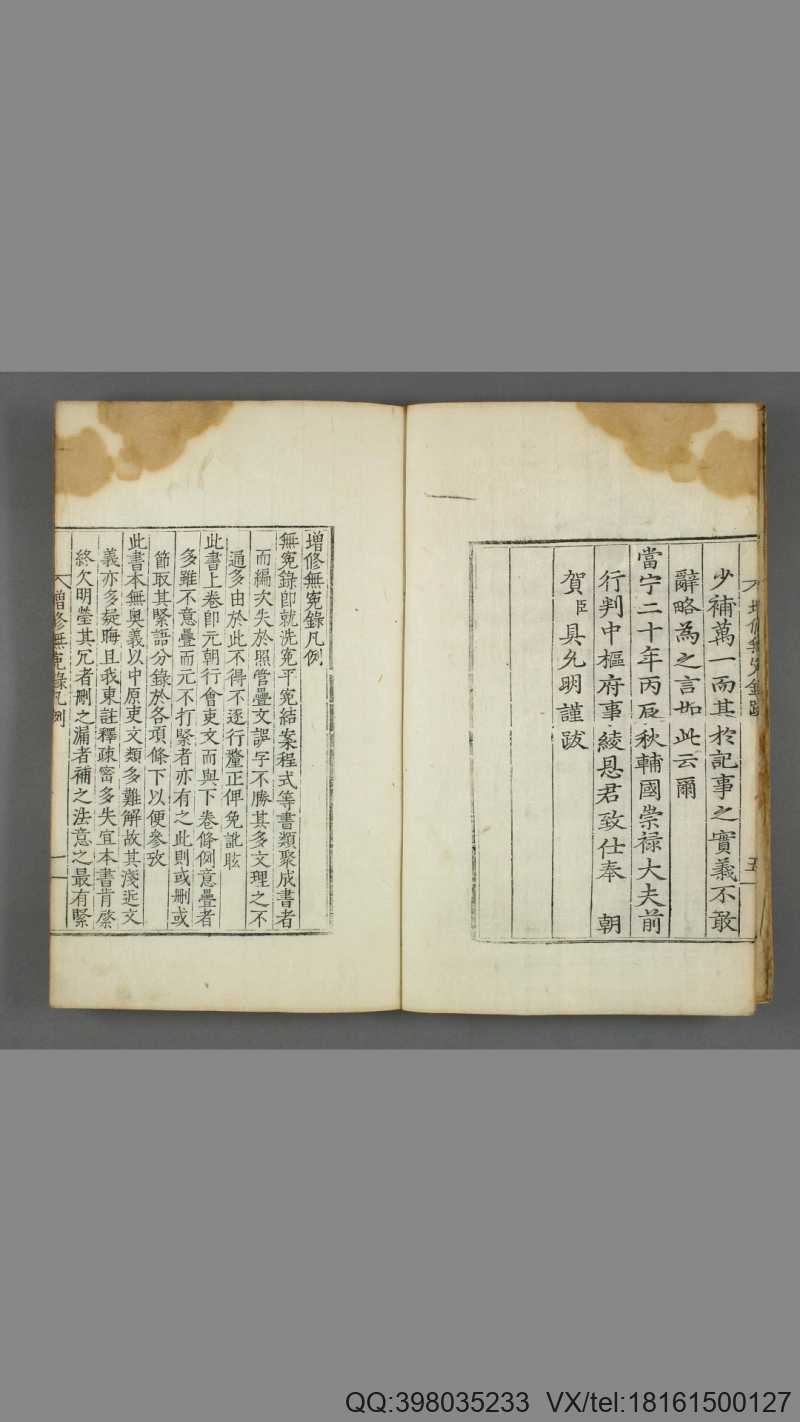 少補萬一而其於記事之實義不敢
辭略為之言如此云爾
當宁二十年丙辰秋輔國崇祿大夫前
行判中樞府事綾恩君致仕奉　朝
賀臣具允明謹跋
增修無冤錄凡例
無冤錄卽就洗冤平冤結案程式等書類聚成書者
而編次失於照管疊文誤字不勝其多文理之不
通多由於此不得不逐行釐正俾免訛眩
此書上卷卽元朝行會吏文而與下卷條例意疊者
多雖不意疊而元不打緊者亦有之此則或删或
節取其緊語分錄於各項條下以便參攷
此書本無奧義以中原吏文類多難解故其淺近文
義亦多疑晦且我東註釋疎宻多失宜本書肯綮
終欠明瑩其冗者刪之漏者補之法意之最有緊
增修無冤錄凡例
一
QQ:398035233 VX/tel:18161500127